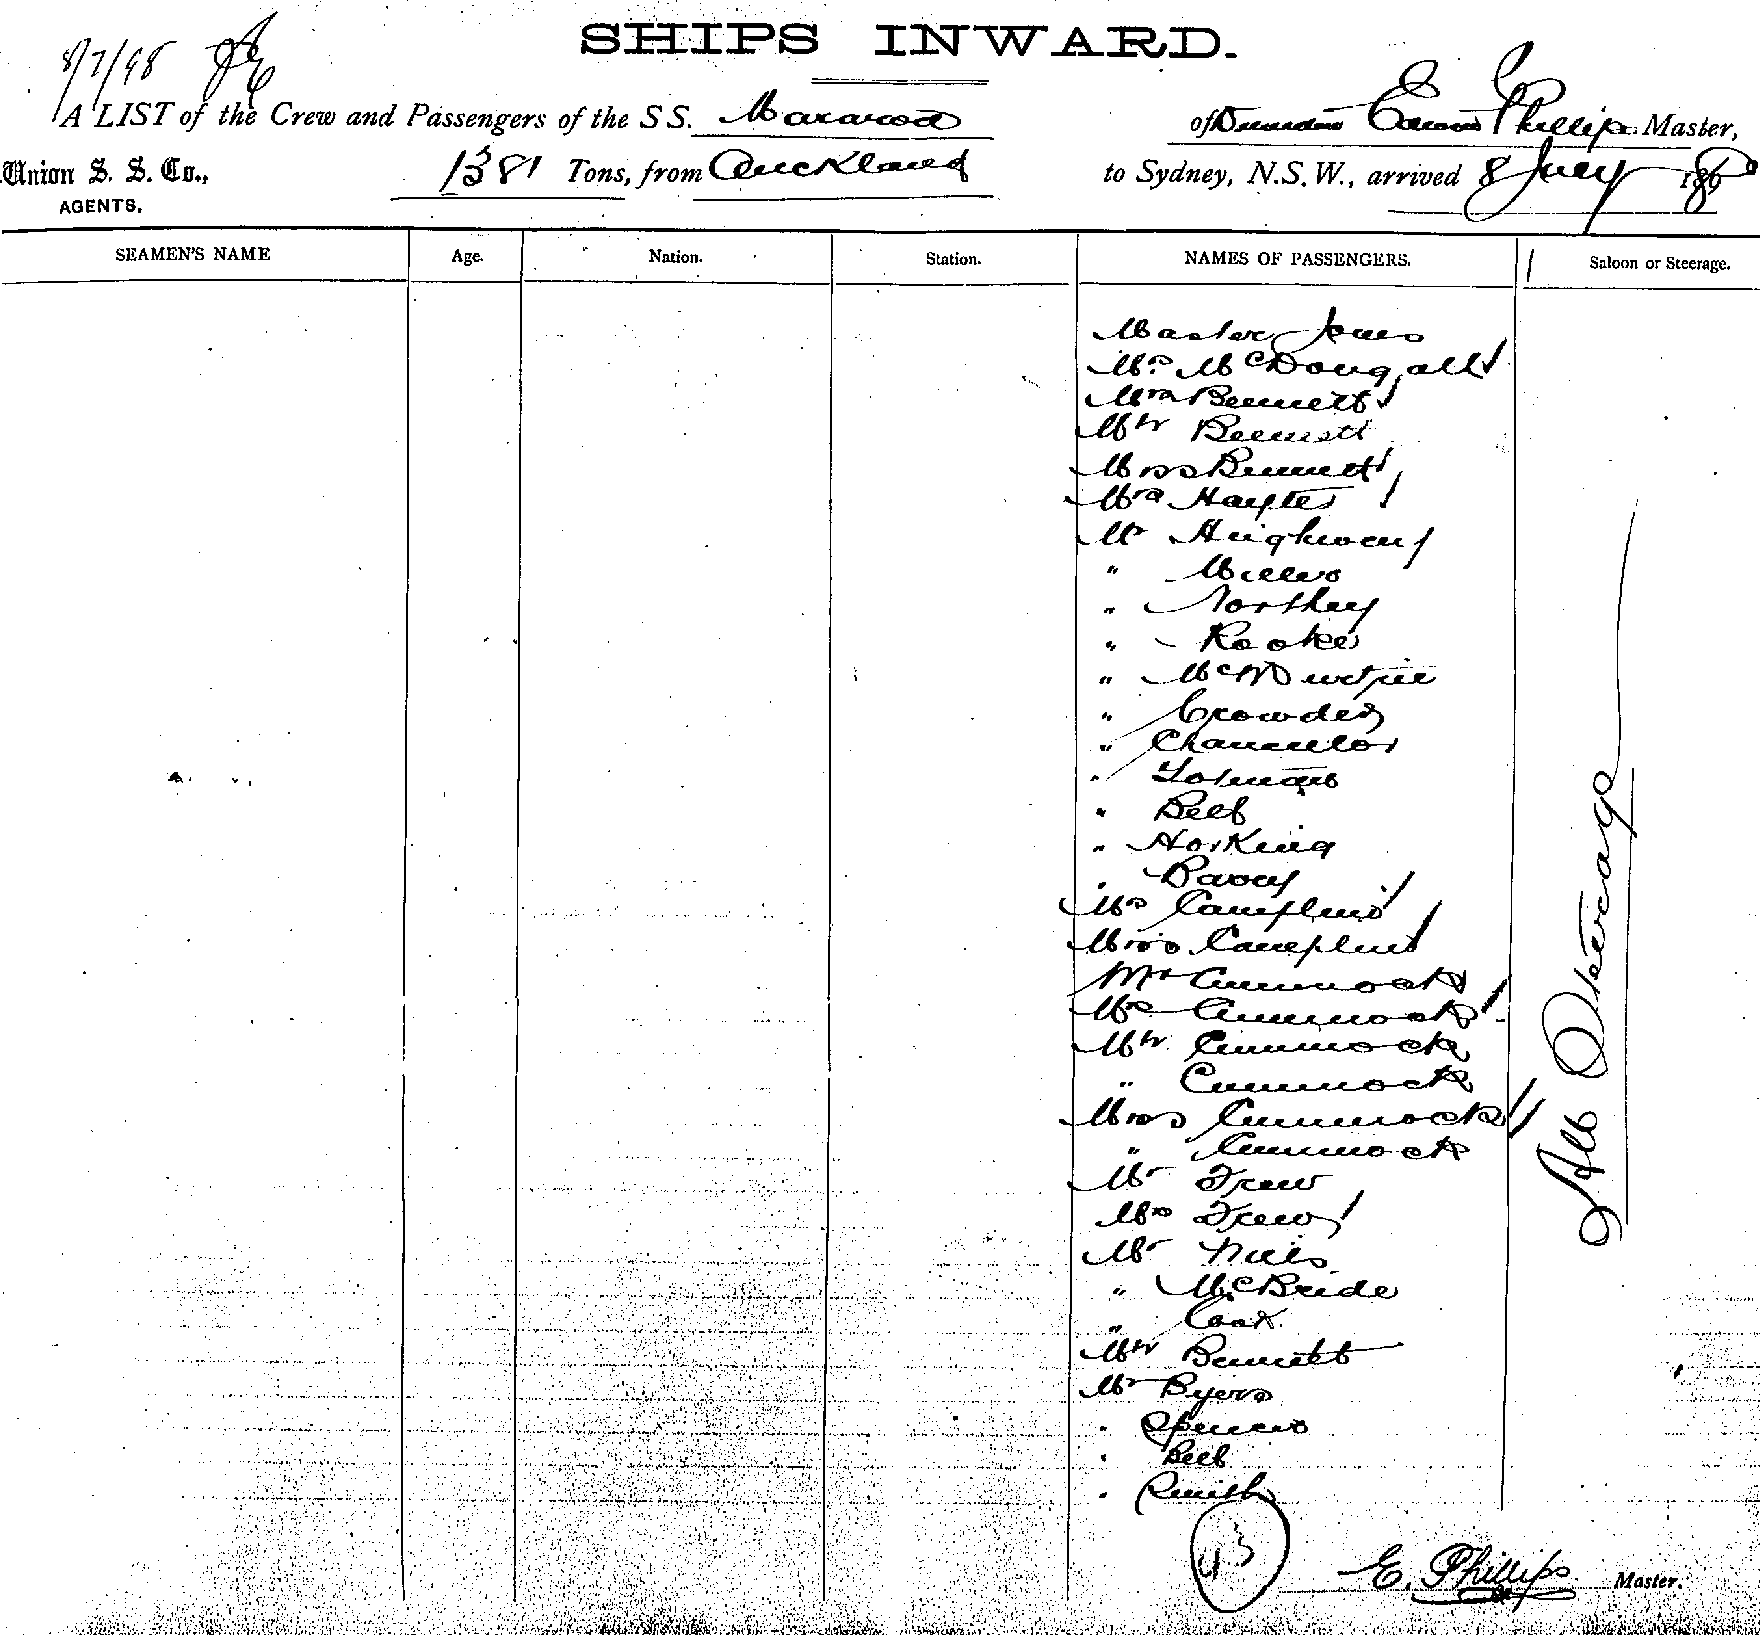 SHIPS INWARD.
8/7/98
A LIST of the Crew and Passengers of the S S. Mararoa of Dunedin Edwin Phillips Master,
Union S. S. Co., 1381 Tons, from Auckland to Sydney, N.S.W., arrived 8 July 189
AGENTS.
SEAMEN'S NAME Age. Nation. Station. NAMES OF PASSENGERS. Saloon or Steerage.
Master Jones
Mrs McDougall
Mrs Bennett
Mstr Bennett
Miss Bennett
Mrs Hayter
Mr Highway
" Miller
" Northey
" Rooke
" McMurtrie
" Crowder
" Chancellor
"
" Bell
" Horking
" Davey
Mrs Camplin
Miss Camplin
Mr Cummock
Mrs Cummock
Mstr Cummock
" Cummock
Miss Cummock
" Cummock
Mr Trew
Mrs Trew
Mr
" McBride
" Cook
Mstr Bennett
Mr Byers
" Spencer
" Bell
" Smith
All Steerage
43
E. Phillips Master.